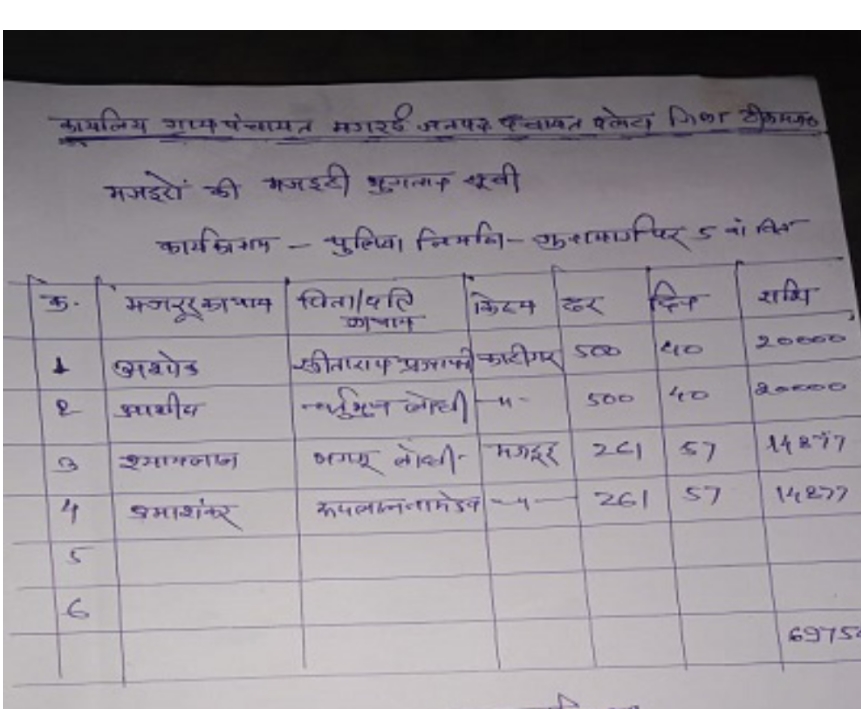 कार्यालय ग्राम पंचायत मगरई जनपद पंचायत पलेरा जिला टीकमगढ़
मजदूरों की मजदूरी भुगतान सूची
कार्य का नाम - पुलिया निर्माण - 5 वां वित्त
क्र. मजदूर का नाम पिता/पति का नाम किस्म दर दिन राशि
1 अशोक सीताराम प्रजापति कारीगर 500 40 20000
2 आशीष चर्तुभुज लोधी -"- 500 40 20000
3 श्यामलाल भगगू लोधी- मजदूर 261 57 14877
4 उमाशंकर नामदेव -"- 261 57 14877
5
6
6975